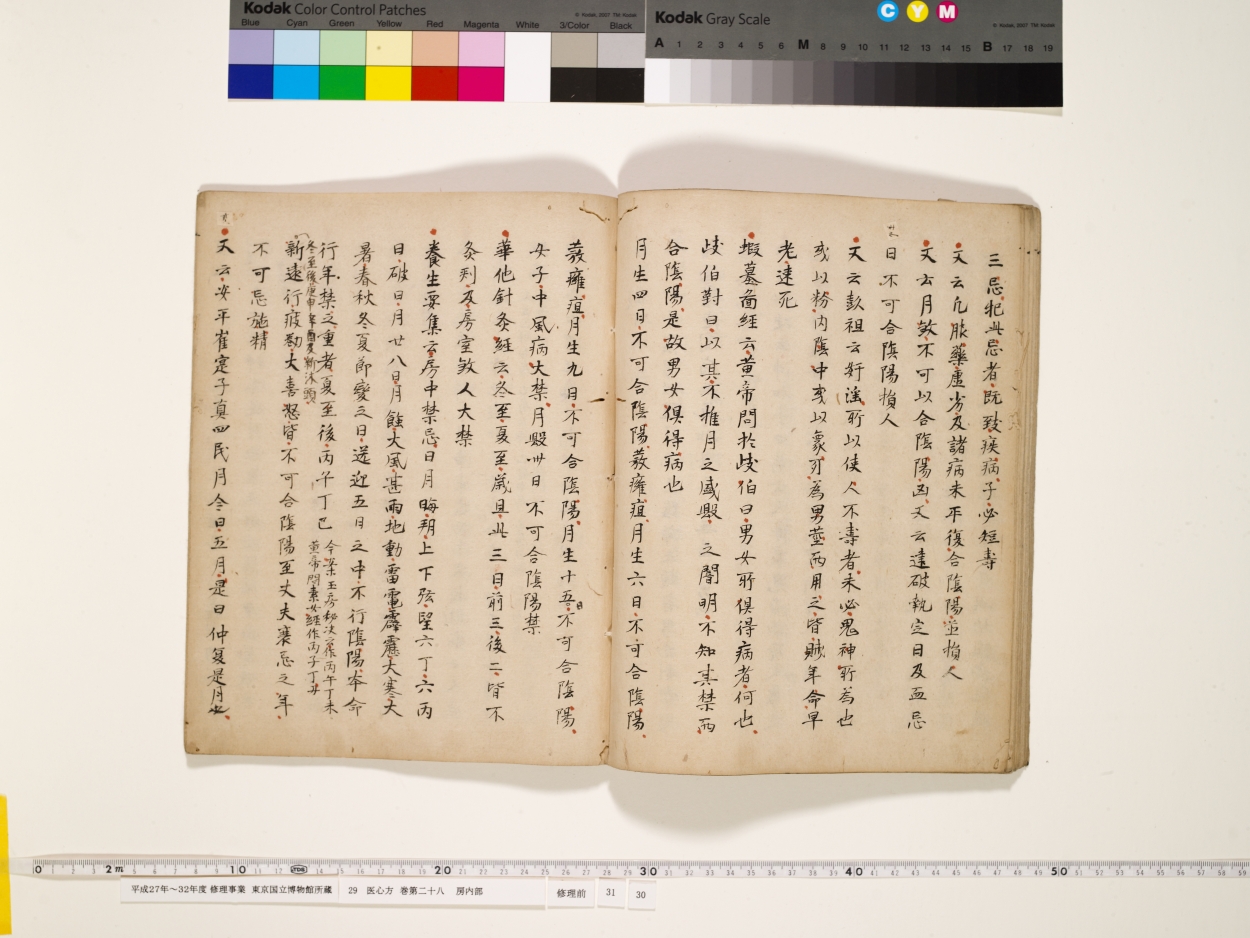 Kodak Color Control Patches
© Kodak, 2007 TM: Kodak
Blue Cyan Green Yellow Red Magenta White 3/Color Black
Kodak Gray Scale
C Y M
© Kodak, 2007 TM: Kodak
A 1 2 3 4 5 6 M 8 9 10 11 12 13 14 15 B 17 18 19
三忌犯此忌者既致疾病子必短壽
又云凡服藥虛劣及諸病未平復合陰陽並損人
又云月煞不可以合陰陽凶又云建破執定日及血忌
日不可合陰陽損人
又云彭祖云奸淫所以使人不壽者未必鬼神所為也
或以粉內陰中或以象牙為男莖而用之皆賊年命早
老速死
蝦蟇圖經云黄帝問於岐伯曰男女所俱得病者何也
岐伯對曰以其不推月之盛毀之闇明不知其禁而
合陰陽是故男女俱得病也
月生四日不可合陰陽發癰疽月生六日不可合陰陽
發癰疽月生九日不可合陰陽月生十五日不可合陰陽
女子中風病大禁月毀卅日不可合陰陽禁
華他針灸經云冬至夏至歲旦此三日前三後二皆不
灸刺及房室煞人大禁
養生要集云房中禁忌日月晦朔上下弦望六丁六丙
日破日月廿八日月蝕大風甚雨地動雷電霹靂大寒大
暑春秋冬夏節變之日送迎五日之中不行陰陽本命
行年禁之重者夏至後丙午丁巳 今案玉房秘决云丙午丁未
黄帝問素女經作丙子丁丑
冬至後庚申辛酉及新沐頭
新遠行疲勌大喜怒皆不可合陰陽至丈夫衰忌之年
不可忌施精
又云安平崔寔子真四民月令曰五月是日仲夏是月也
0 2m 10 20 30 40 50
平成27年～32年度 修理事業 東京国立博物館所蔵
29 医心方 巻第二十八 房内部
修理前
31
30